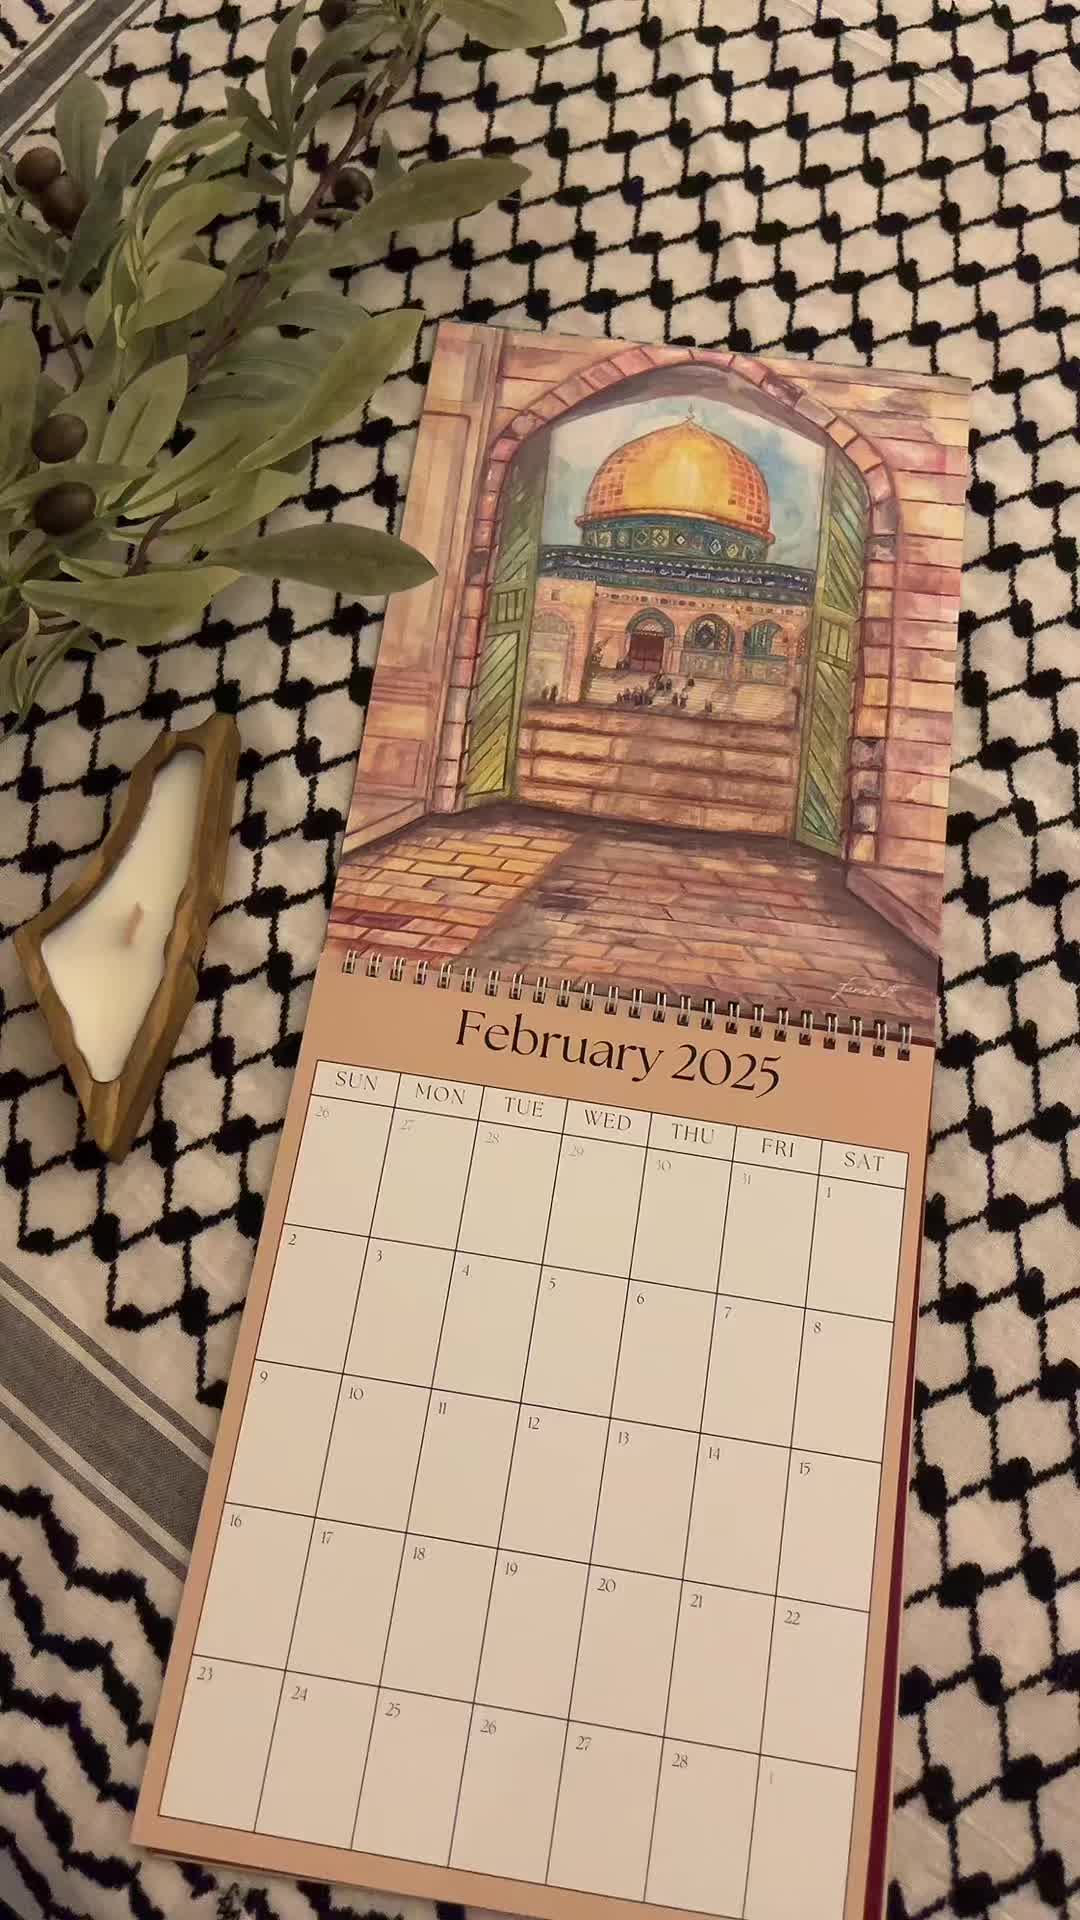 February 2025
SUN MON TUE WED THU FRI SAT
26 27 28 29 30 31 1
2 3 4 5 6 7 8
9 10 11 12 13 14 15
16 17 18 19 20 21 22
23 24 25 26 27 28 1